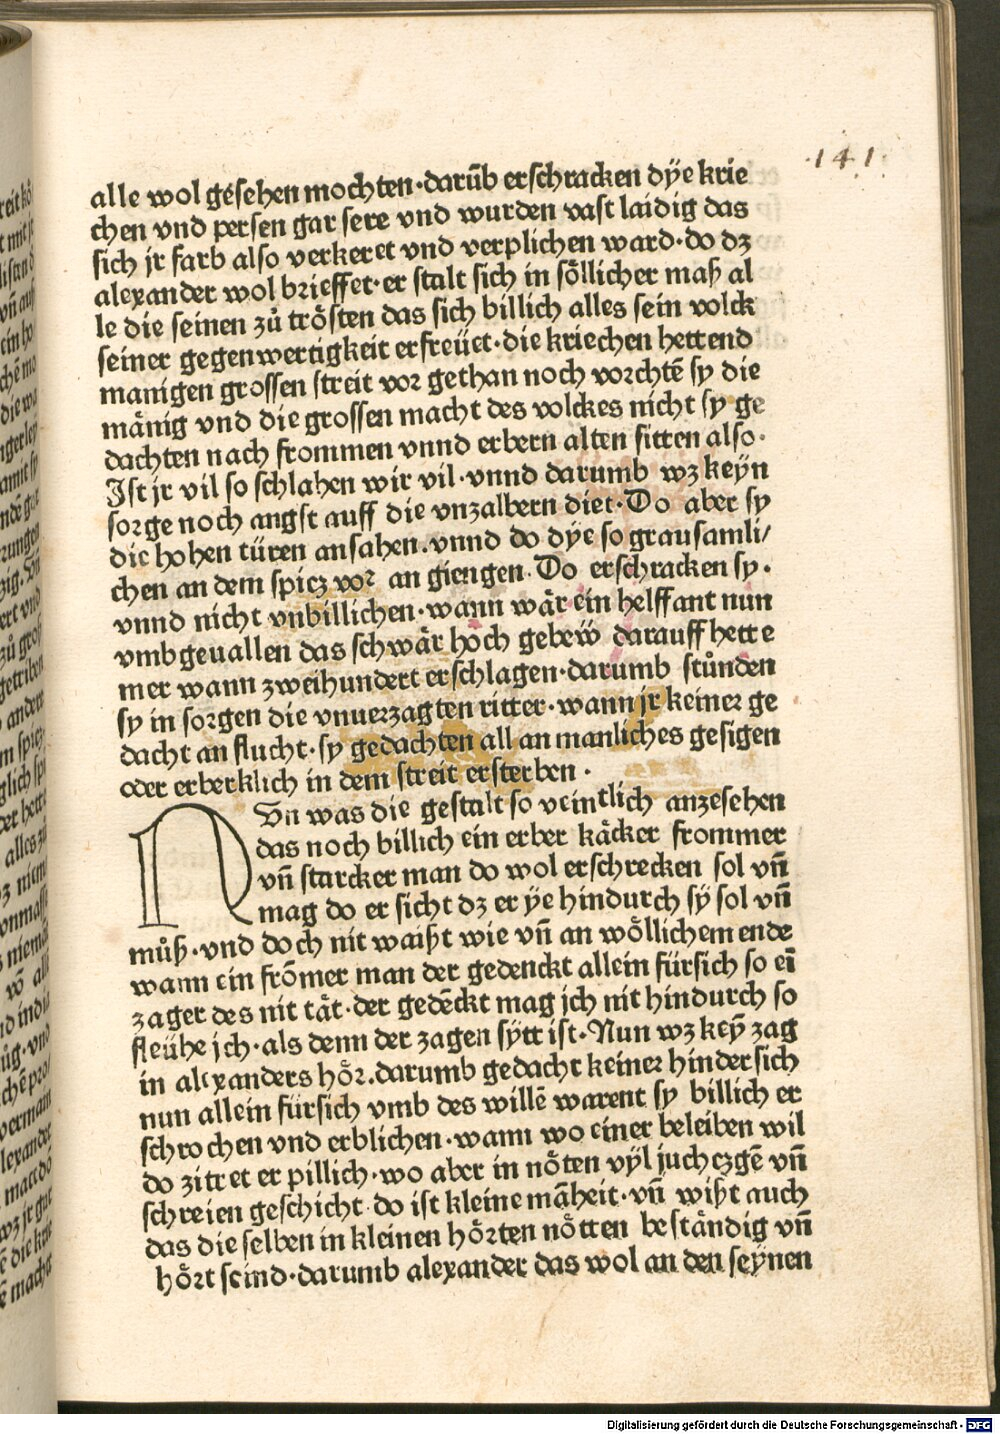 ·141·
alle wol gesehen mochten·darūb erschracken dÿe krie
chen vnd persen gar sere vnd wurden vast laidig das
sich jr farb also verkeret vnd verplichen ward·do dz
alexander wol brieffet·er stalt sich in söllicher maß al
le die seinen zů trösten das sich billich alles sein volck
seiner gegenwertigkeit erfreüet·die kriechen hettend
manigen grossen streit vor gethan noch vorchtē sy die
mänig vnd die grossen macht des volckes nicht sy ge
dachten nach frommen vnnd erbern alten sitten also·
Ist jr vil so schlahen wir vil·vnnd darumb wz keÿn
sorge noch angst auff die vnzalbern diet·Do aber sy
die hohen türen ansahen.vnnd do dÿe so grausamli/
chen an dem spicz vor an giengen·Do erschracken sy·
vnnd nicht vnbillichen·wann wär ein helffant nun
vmbgeuallen das schwär hoch gebeẅ darauff hette
mer wann zweihundert erschlagen·darumb stůnden
sy in sorgen die vnuerzagten ritter·wann jr keiner ge
dacht an flucht·sy gedachten all an manliches gesigen
oder erberklich in dem streit ersterben·
NVn was die gestalt so veintlich anzesehen
das noch billich ein erber käcker frommer
vn̄ starcker man do wol erschrecken sol vn̄
mag do er sicht dz er ÿe hindurch sÿ sol vn̄
můß·vnd doch nit waißt wie vn̄ an wöllichem ende
wann ein frōmer man der gedenckt allein fürsich so ei̅
zager des nit tät·der gedēckt mag jch nit hindurch so
fleühe jch·als denn der zagen sÿtt ist·Nun wz keÿ̄ zag
in alexanders hör.darumb gedacht keiner hindersich
nun allein fürsich vmb des willē warent sy billich er
schrochen vnd erblichen·wann wo einer beleiben wil
do zitret er pillich·wo aber in nöten vÿl juchczgē vn̄
schreien geschicht do ist kleine māheit·vn̄ wißt auch
das die selben in kleinen hörten nötten beständig vn̄
hört seind·darumb alexander das wol an den seÿnen
Digitalisierung gefördert durch die Deutsche Forschungsgemeinschaft - DFG